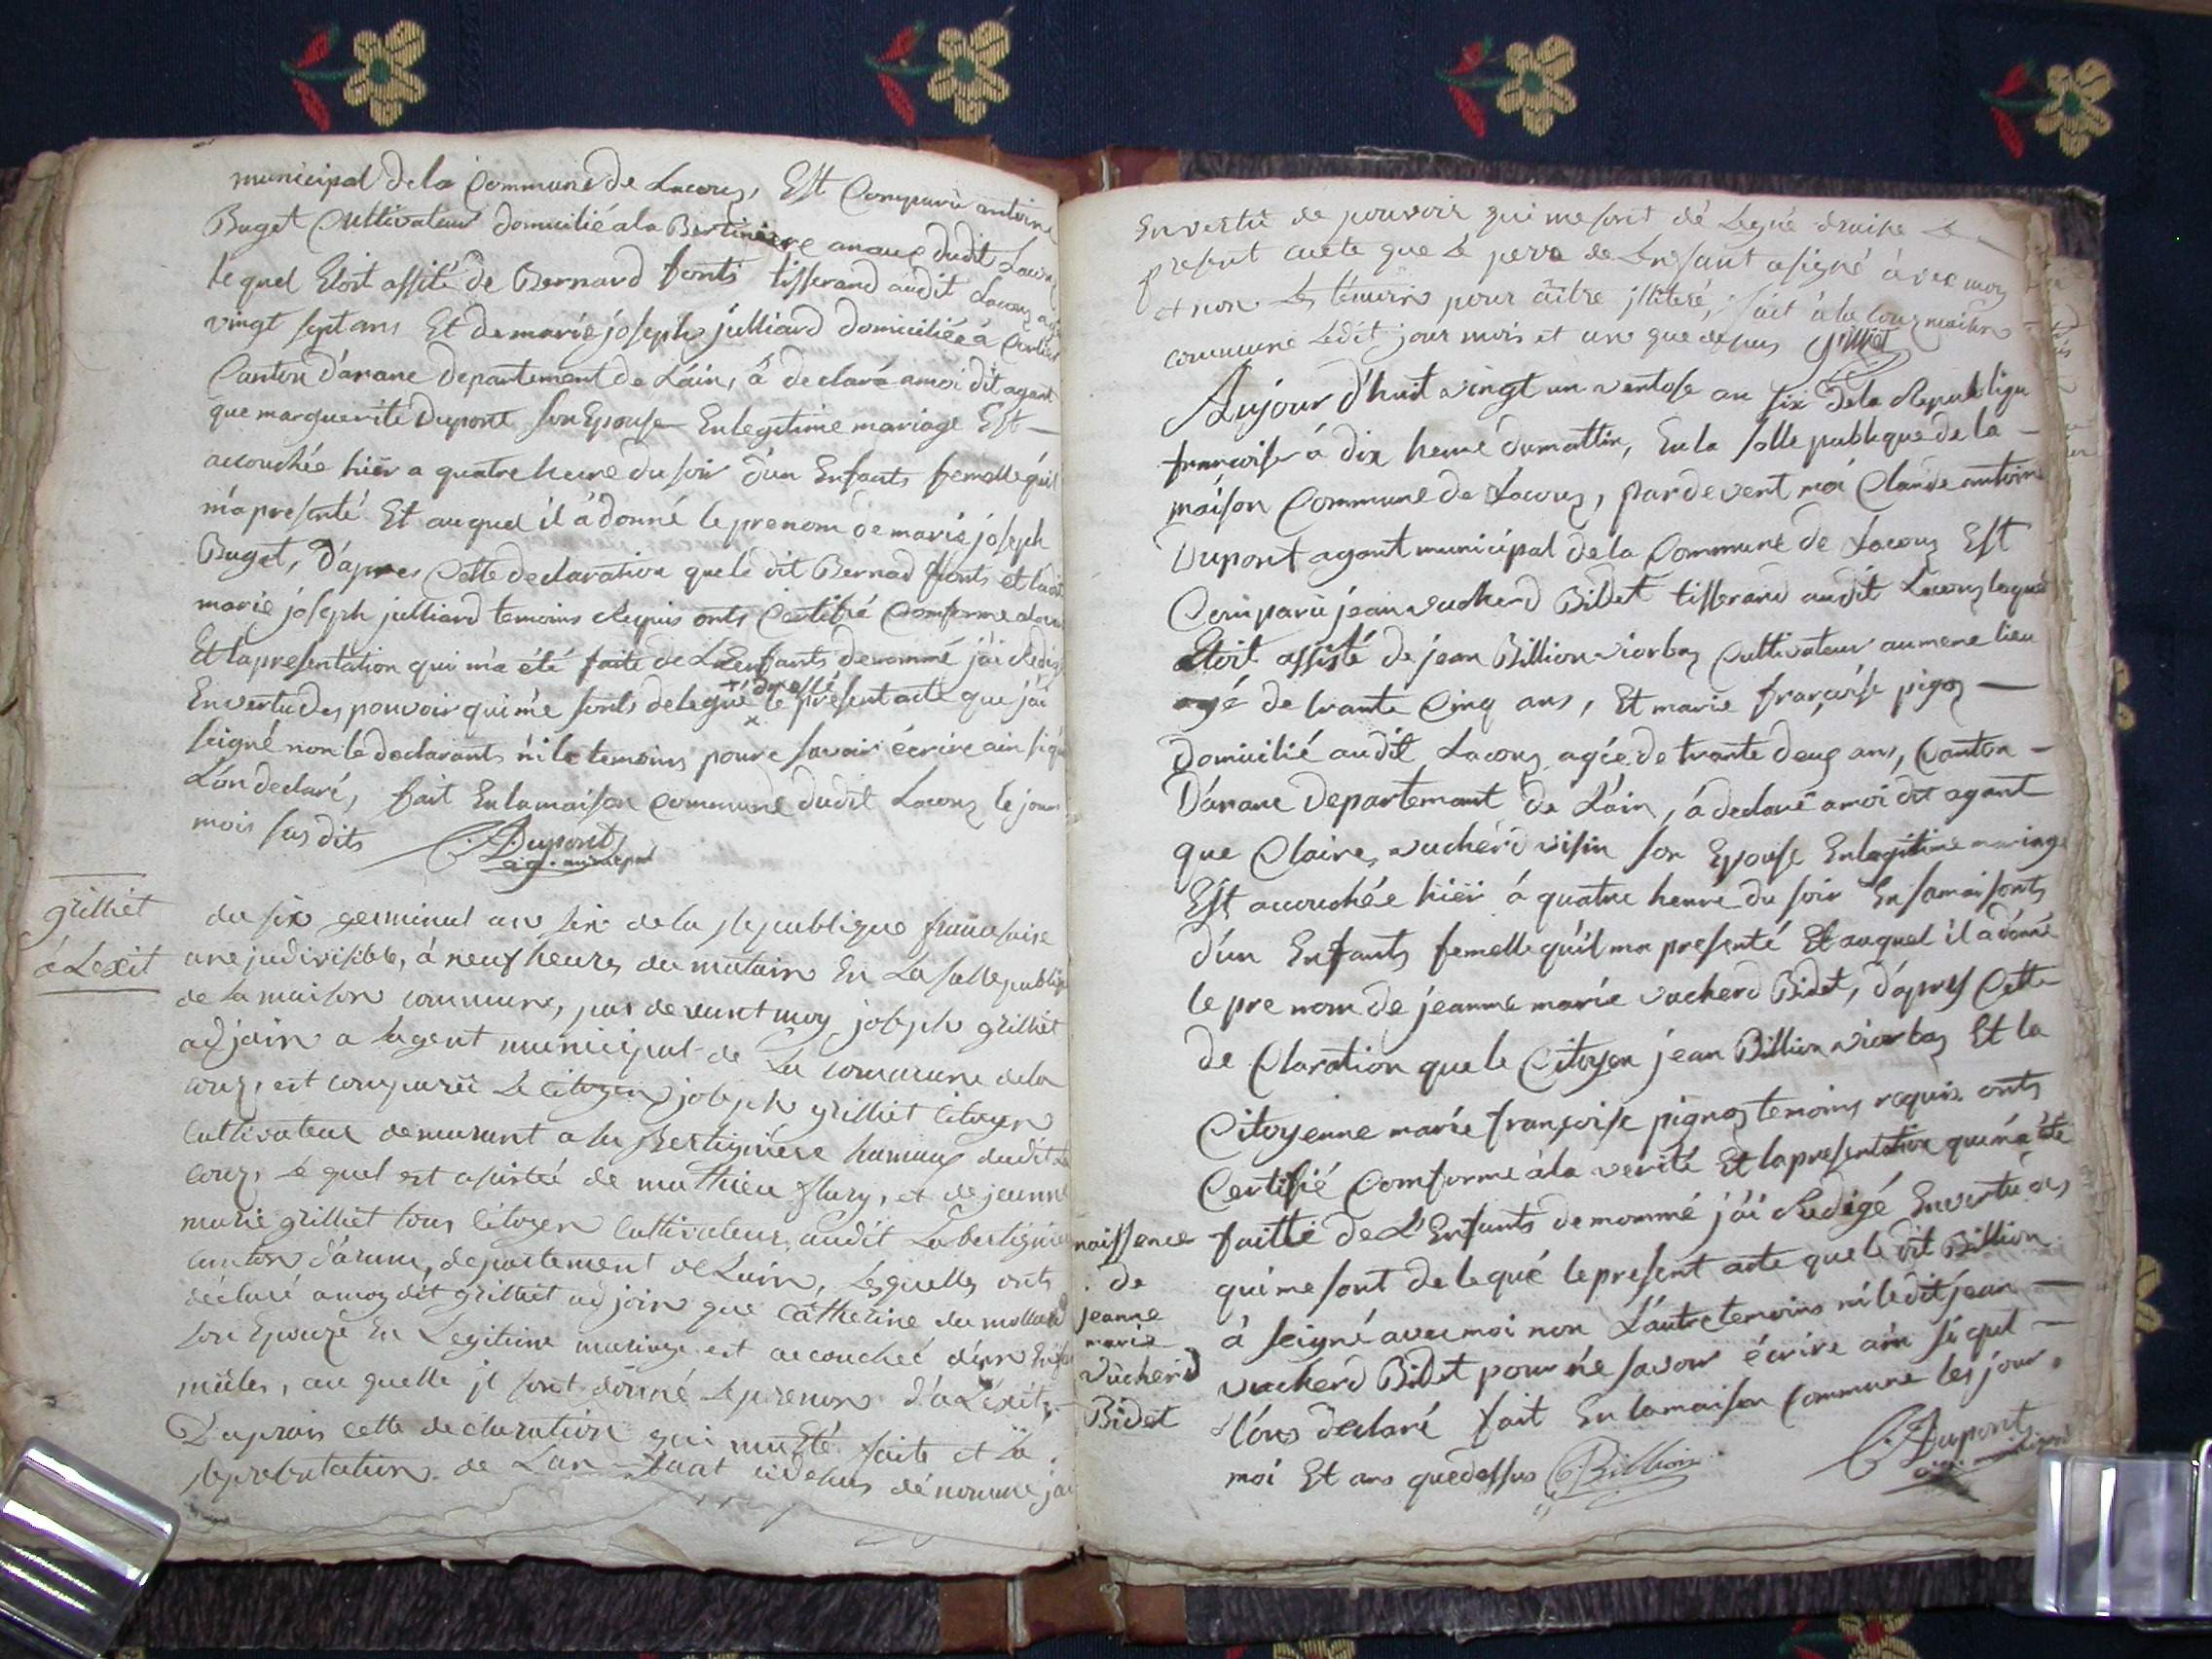 municipal de la Commune de Lacoux, Est Comparu antoine
Buget Cultivateur domicilié a la Bertiniere anaux dudit Lacoux
le quel Etoit assité de Bernard fonts tisserand audit Lacoux agé
vingt sept ans Et de marie joseph julliard domiciliée à
Canton d'arane departement de L'ain, á declaré amoi dit agant
que marguerite Dupont son Epouse En legitime mariage Est
acouchée hier a quatre heure du soir d'un Enfants femelle qu'il
m'a presenté Et auquel il á donné le prenom de marie joseph
Buget, D'apres Cette declaration que le dit Bernad fonts et ladit
marie joseph julliard temoins Requis onts Certifié Comforme alave
Et la presentation qui m'a été faite de L'Enfants denommé j'ai Redigé
+ dressé
En vertu des pouvoir qui me sonts delegué le present acte que j'ai
seigné non le declarants ni le temoins pour e savoir écrire ain si qu
L'on declaré, fait En la maison Commune dudit Lacoux le jour
mois sus dits C. Dupont
ag. municipal
grilliet
á Lexit
du six germinal an six de la Republique francoise
une judivisible, à neuf heures du matain En La salle publiq
de la maison commune, par devant moy joseph grilliet
adjoin a lagent municipal de La commune de la
couz, est comparu Le Citoyen joseph grilliet Citoyen
Cultivateur demeurant a la Bertiginiere hamaux dudit La
couz, le quel est asistée de mathieu flury, et de jeanne
marie grilliet tous Citoyen Cultivateur audit La bertiginie
canton d'arane, departement de Lain, Lesquelles onts
déclaré a moy dit grilliet adjoin que Catherine du mollard
son Epouze En Legitime mariage est acouchée d'un Enfa
mâles, au quelle jl sont donné Le prenom d'a Lexit,
D'aprais cette declaration qui ma Eté faite et la
Representation de Lan faat cidesus dénommé jai
En vertu de pouvoir qui me sont dé Legué draise Le
présent acete que Le pere de Lenfant a signé à vec moy
et non Les témoins pour aître jlliteré, fait à la couz maison
commune Ledit jour mois et an que desus grilliet
Aujour d'huit vingt un ventose an six de la Republique
françoise á dix heure du mattin, En la salle publique de la
maison Commune de Lacoux, par devent moi Claude antoine
Dupont agant municipal de la Commune de Lacoux Est
Comparu jean vucherd Bidet tisserand audit Lacoux lequel
Etoit assisté de jean Billion viorbaz Cultivateur au meme lieu
agé de trante Cinq ans, Et marie françoise pigoz
domicilié audit Lacoux agée de trante deux ans, Canton
D'arane Departemant de L'ain, á declaré amoi dit agant
que Claire vucherd visin son Epouse En legitime mariage
Est acouchée hier á quatre heure du soir En sa maisonts
d'un Enfants femelle qu'il ma presenté Et auquel il a donné
le pre nom de jeanne marie vucherd Bidet, d'apres Cette
de Claration que le Citoyen jean Billion viorbaz Et la
Citoyenne marie françoise pignoz temoins requis onts
Certifié Comforme á la verité Et la presentation qui m'a été
faitte de L'Enfants denommé j'ai Redigé En vertu des
qui me sont delegué le present acte que le dit Billion
á seigné avec moi non L'autre temoins ni le dit jean
vucherd Bidet pour ne savoir écrire ain si quil
L'ons declaré fait En la maison Commune les jour
moi Et ans que dessus Billion C. Dupont
ag. municipal
naissence
de
jeanne
marie
vucherd
Bidet